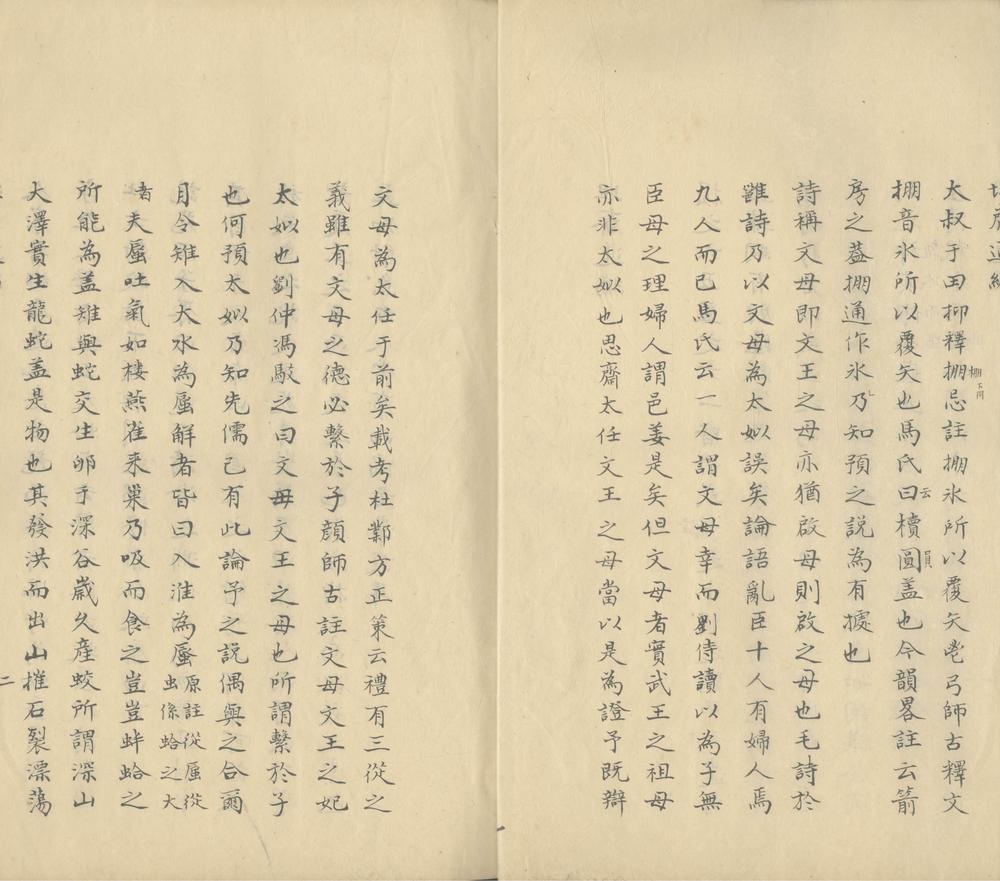 大叔于田抑釋掤忌註掤氷所以覆矢鬯弓師古釋文
掤音氷所以覆矢也馬氏曰櫝圓盖也今韻畧註云箭
房之葢掤通作氷乃知預之説為有據也
詩稱文母即文王之母亦猶啟母則啟之母也毛詩於
雝詩乃以文母為太姒誤矣論語亂臣十人有婦人焉
九人而已馬氏云一人謂文母幸而劉侍讀以為子無
臣母之理婦人謂邑姜是矣但文母者實武王之祖母
亦非太姒也思齋太任文王之母當以是為證予既辯
文母為太任于前矣載考杜鄴方正策云禮有三從之
義雖有文母之德必繫於子顔師古註文母文王之妃
太姒也劉仲馮駁之曰文母文王之母也所謂繫於子
也何預太姒乃知先儒已有此論予之説偶與之合爾
月令雉入大水為蜃解者皆曰入淮為蜃原註從蜃從虫係蛤之大
者夫蜃吐氣如樓燕雀来巢乃吸而食之豈豈蚌蛤之
所能為盖雉與蛇交生卵于深谷歲久産蛟所謂深山
大澤實生龍蛇盖是物也其發洪而出山摧石裂漂蕩
二